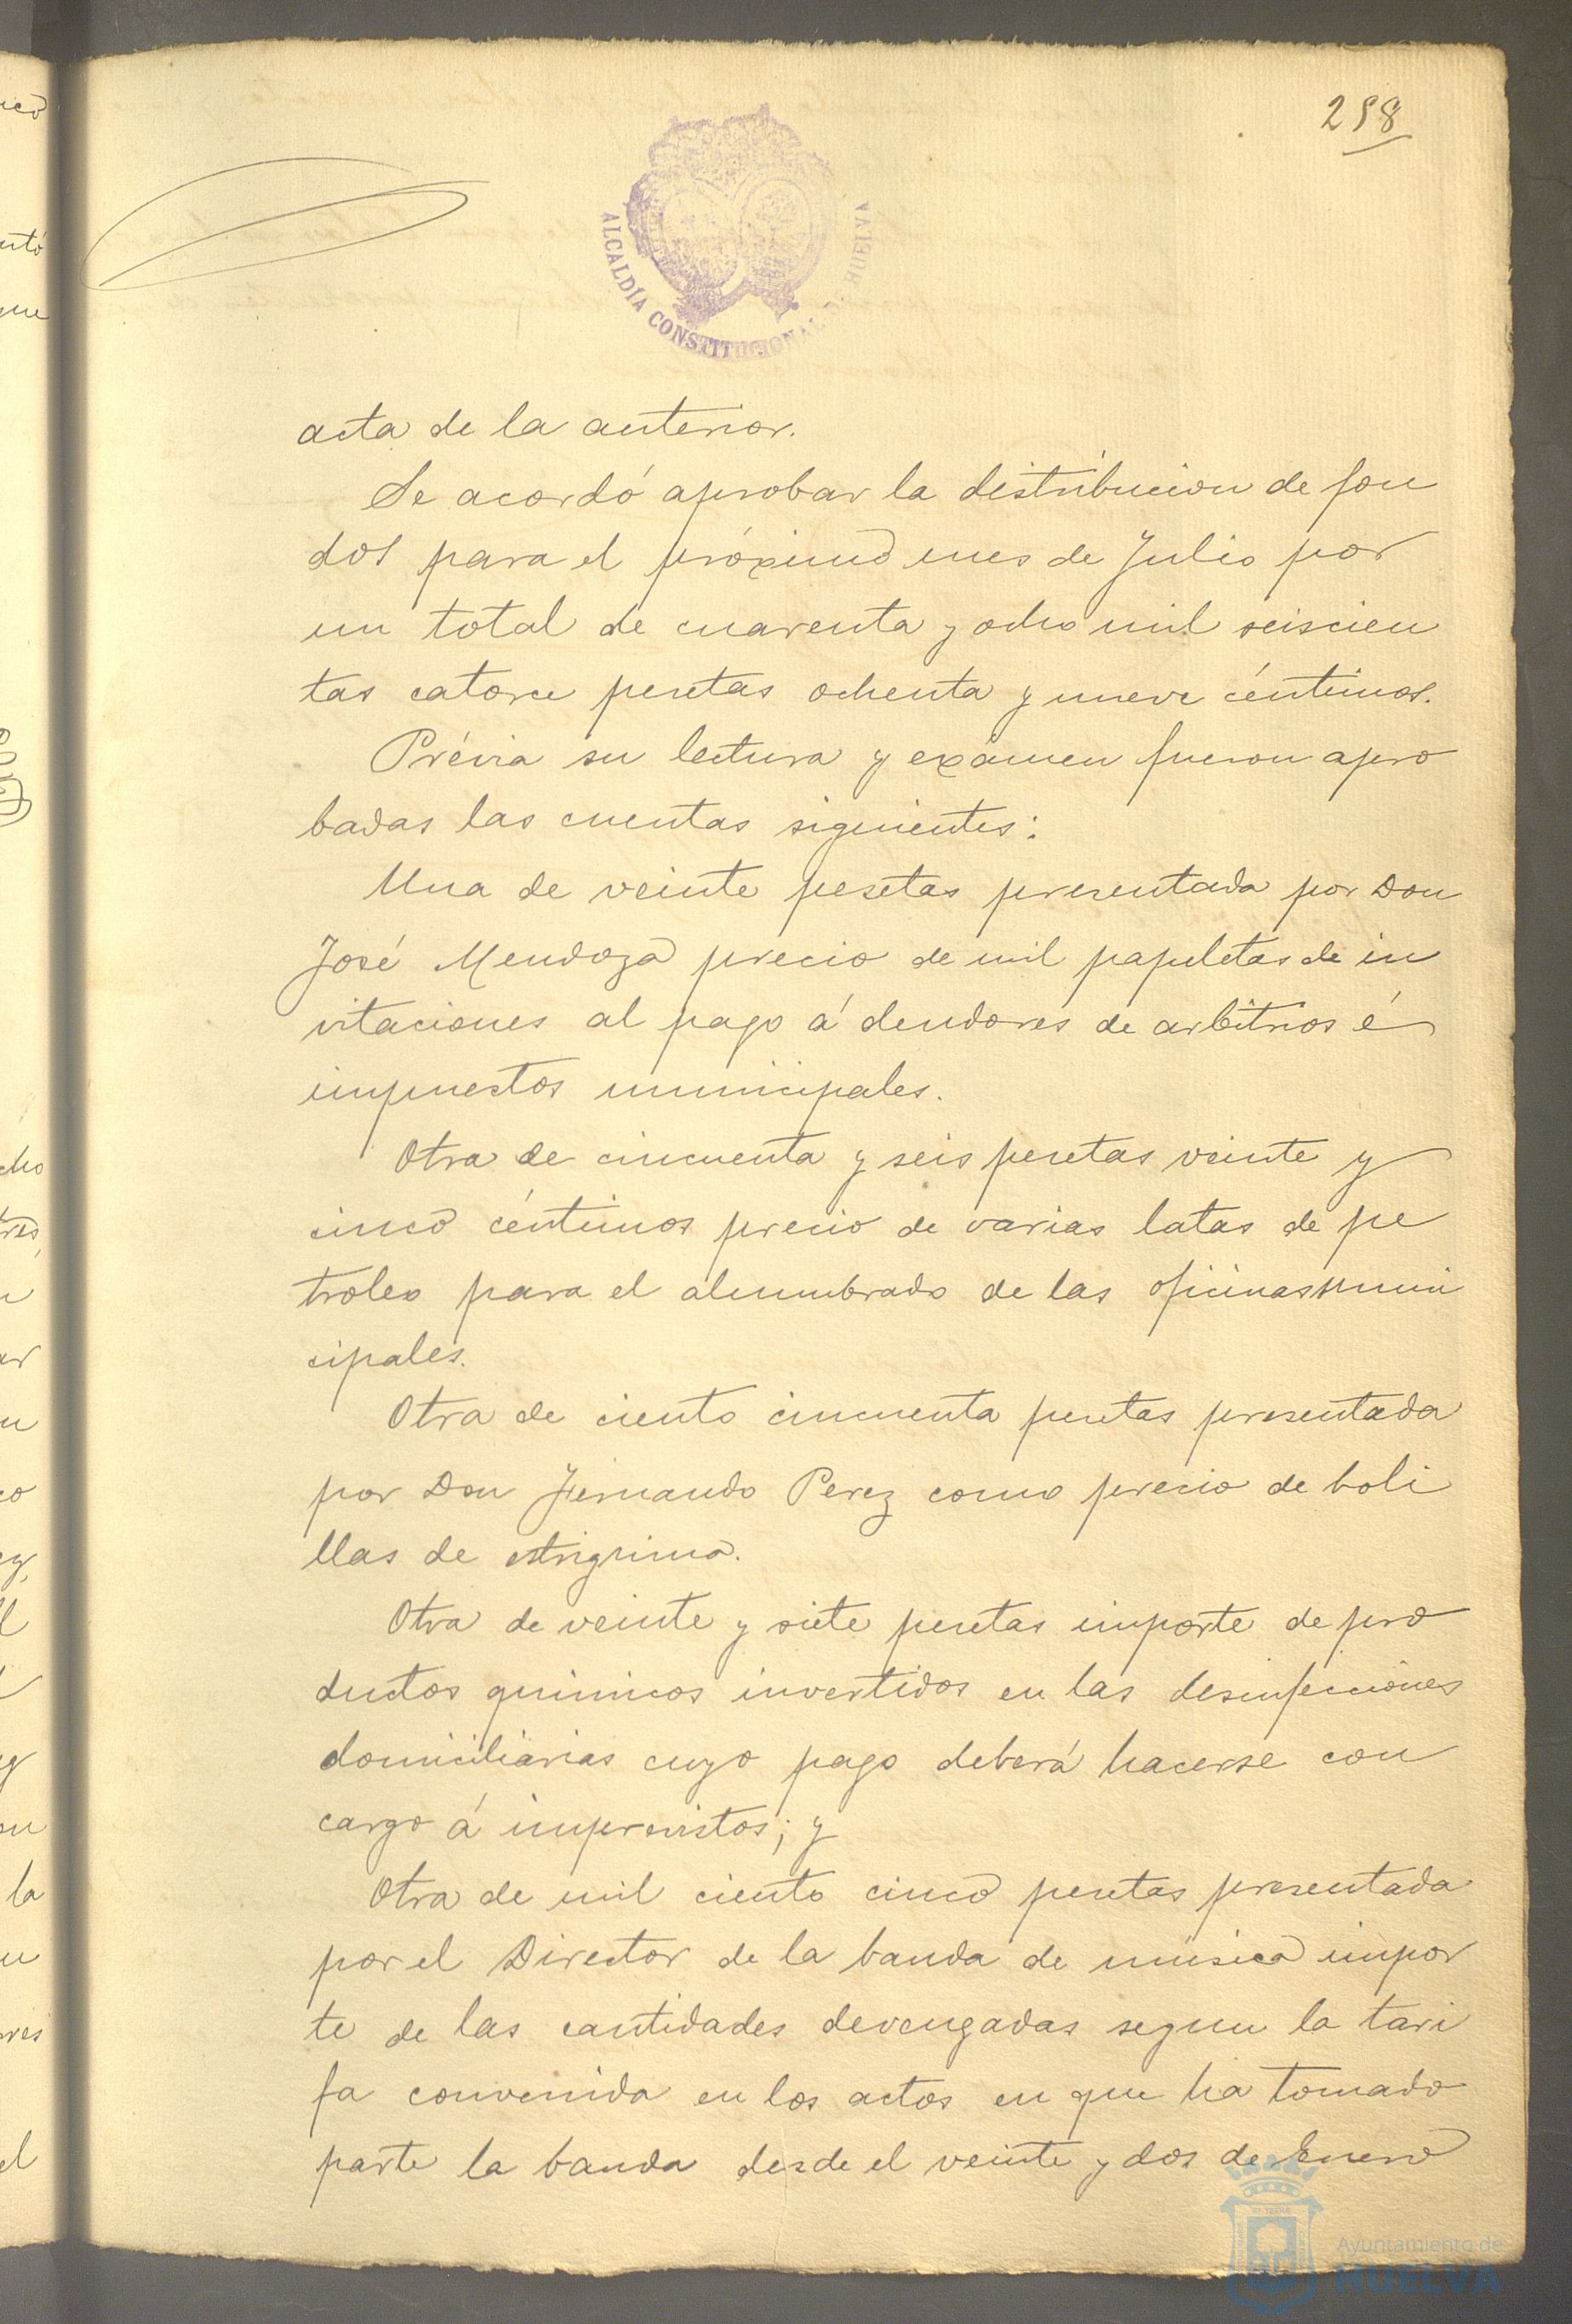 258
ALCALDÍA CONSTITUCIONAL HUELVA
acta de la anterior.
Se acordó aprobar la distribucion de fon
dos para el próximo mes de Julio por
un total de cuarenta y ocho mil seiscien
tas catorce pesetas ochenta y nueve céntimos.
Prévia su lectura y exámen fueron apro
badas las cuentas siguientes:
Una de veinte pesetas presentada por Don
José Mendoza precio de mil papeletas de in
vitaciones al pago á deudores de arbitrios é
impuestos municipales.
Otra de cincuenta y seis pesetas veinte y
cinco céntimos precio de varias latas de pe
troleo para el alumbrado de las oficinas muni
cipales.
Otra de ciento cincuenta pesetas presentada
por Don Fernando Perez como precio de boli
llas de
Otra de veinte y siete pesetas importe de pro
ductos quimicos invertidos en las desinfecciones
domiciliarias cuyo pago deberá hacerse con
cargo á imprevistos; y
Otra de mil ciento cinco pesetas presentada
por el Director de la banda de música impor
te de las cantidades devengadas segun la tari
fa convenida en los actos en que ha tomado
parte la banda desde el veinte y dos de Enero
Ayuntamiento de
HUELVA